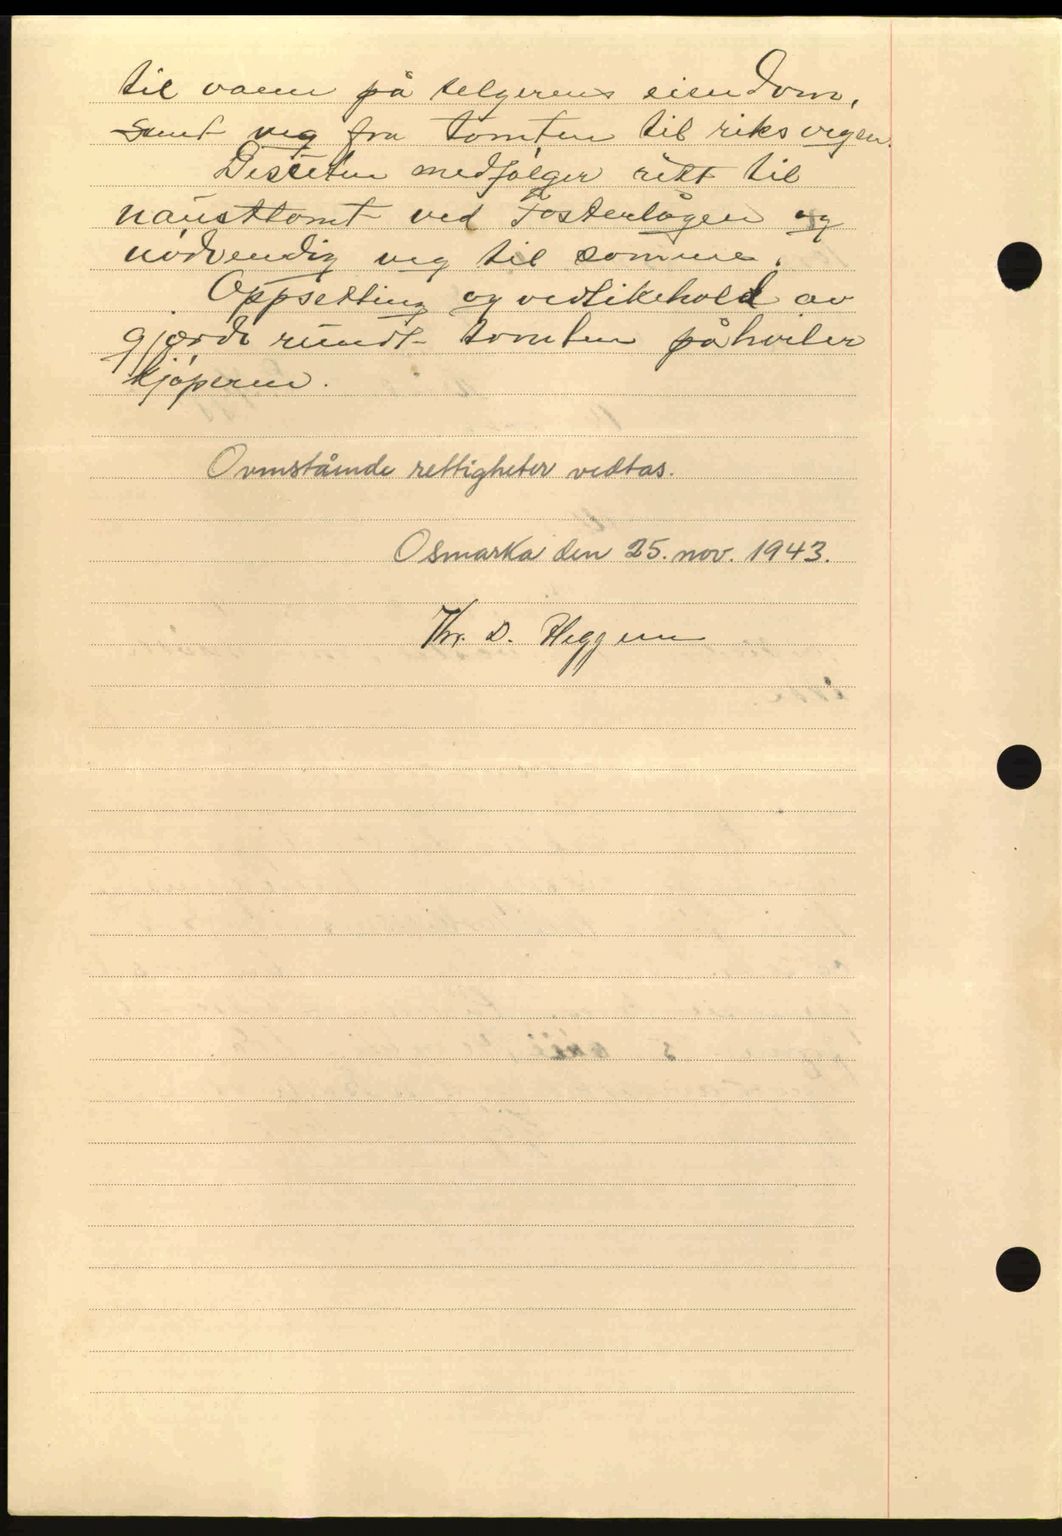 til vann på selgerens eiendom,
samt veg fra tomten til riksvegen.
Dessuten medfølger rett til
nausttomt ved Fosterlågen og
nødvendig veg til samme.
Oppsetting og vedlikehold av
gjerde rundt tomten påhviler
kjøperen.
Ovenstående rettigheter vedtas.
Osmarka den 25. nov. 1943.
D. Heggem